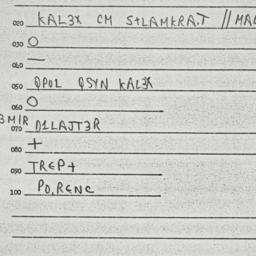 020 KAL3X CM S+LAMKRA.T // MAL
030 O
040 —
050 QPOL QSYN KAL3X
060 O
3MIR
070 D1LAJT3R
080 +
090 TREP+
100 PO.RENC